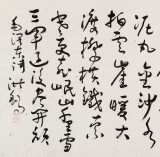 泥丸金沙水
拍云崖暖大
渡桥横铁索
寒更喜岷山千里雪
三军过后尽开颜
毛泽东诗